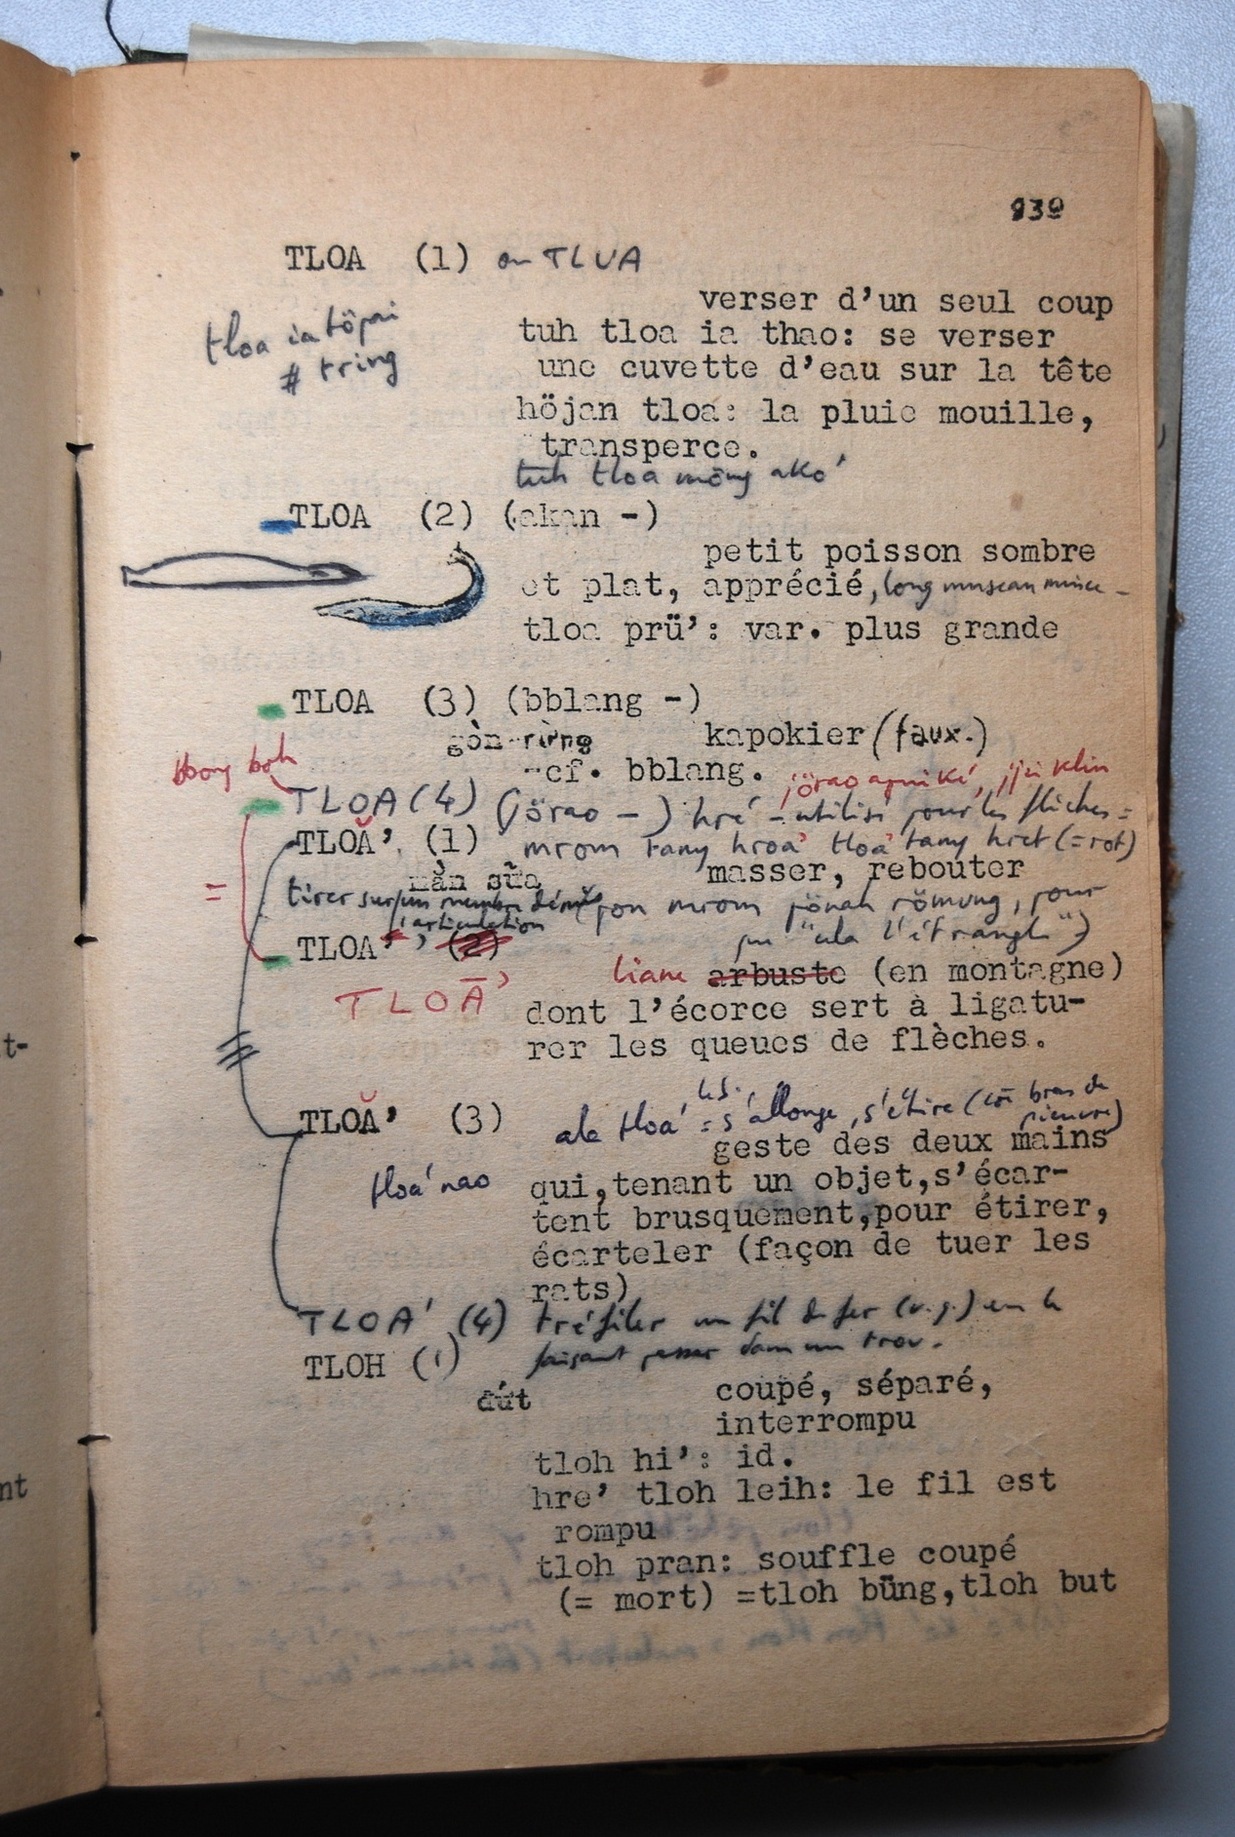 939
TLOA (1) ou TLUA
verser d'un seul coup
tloa ia töpai
# tring
tuh tloa ia thao: se verser
une cuvette d'eau sur la tête
höjan tloa: la pluie mouille,
transperce.
tuh tloa möng akó'
TLOA (2) (akan -)
petit poisson sombre
et plat, apprécié, long museau mince
tloa prü': var. plus grande
TLOA (3) (bblang -)
gòn rừng kapokier (faux.)
cf. bblang.
TLOA (4) (jörao -) hré - utilisé pour les flèches =
TLOĂ' (1) mrom tang hroă' tloă' tang hret (= rot)
nắn sữa masser, rebouter
tirer sur un membre démis
articulation
TLOA' (2)
liane arbuste (en montagne)
TLOĀ'
dont l'écorce sert à ligatu-
rer les queues de flèches.
TLOĂ' (3)
ala tloă' = s'allonge, s'étire (bras de
pieuvre)
geste des deux mains
tloă' nao
qui,tenant un objet,s'écar-
tent brusquement,pour étirer,
écarteler (façon de tuer les
rats)
TLOA' (4) tréfiler un fil de fer (v.g.) en le
faisant passer dans un trou.
TLOH (1)
đứt coupé, séparé,
interrompu
tloh hi': id.
hre' tloh leih: le fil est
rompu
tloh pran: souffle coupé
(= mort) =tloh büng,tloh but